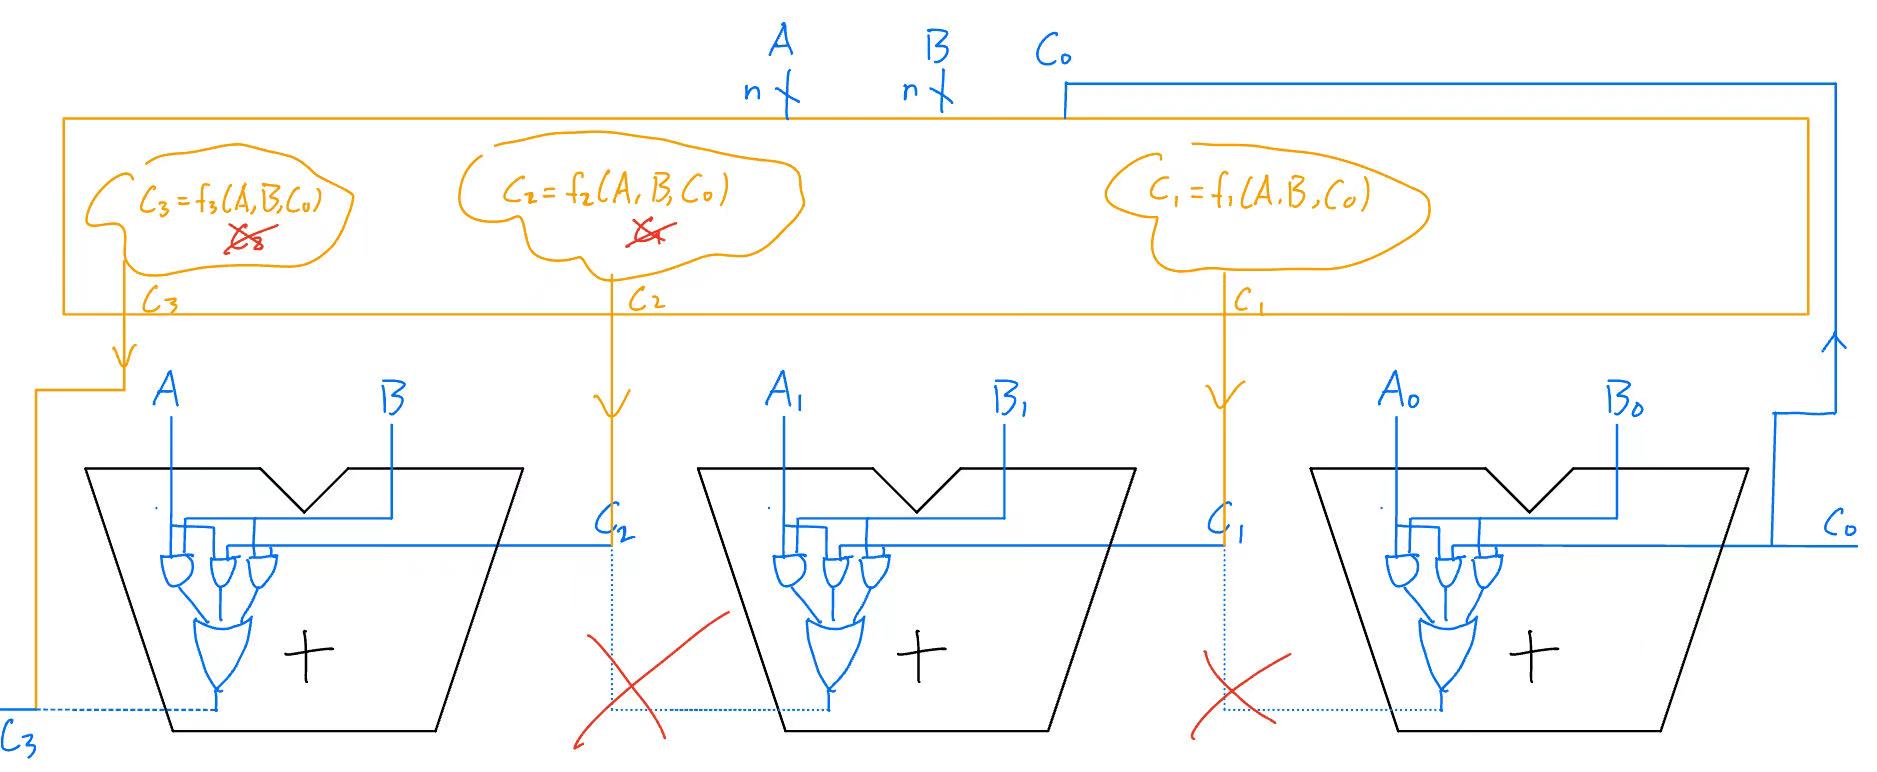 A B C₀
n n
C₃=f₃(A,B,C₀) C₂=f₂(A,B,C₀) C₁=f₁(A.B,C₀)
C₃ C₂ C₁
A B A₁ B₁ A₀ B₀
C₂ C₁ C₀
+ + +
C₃